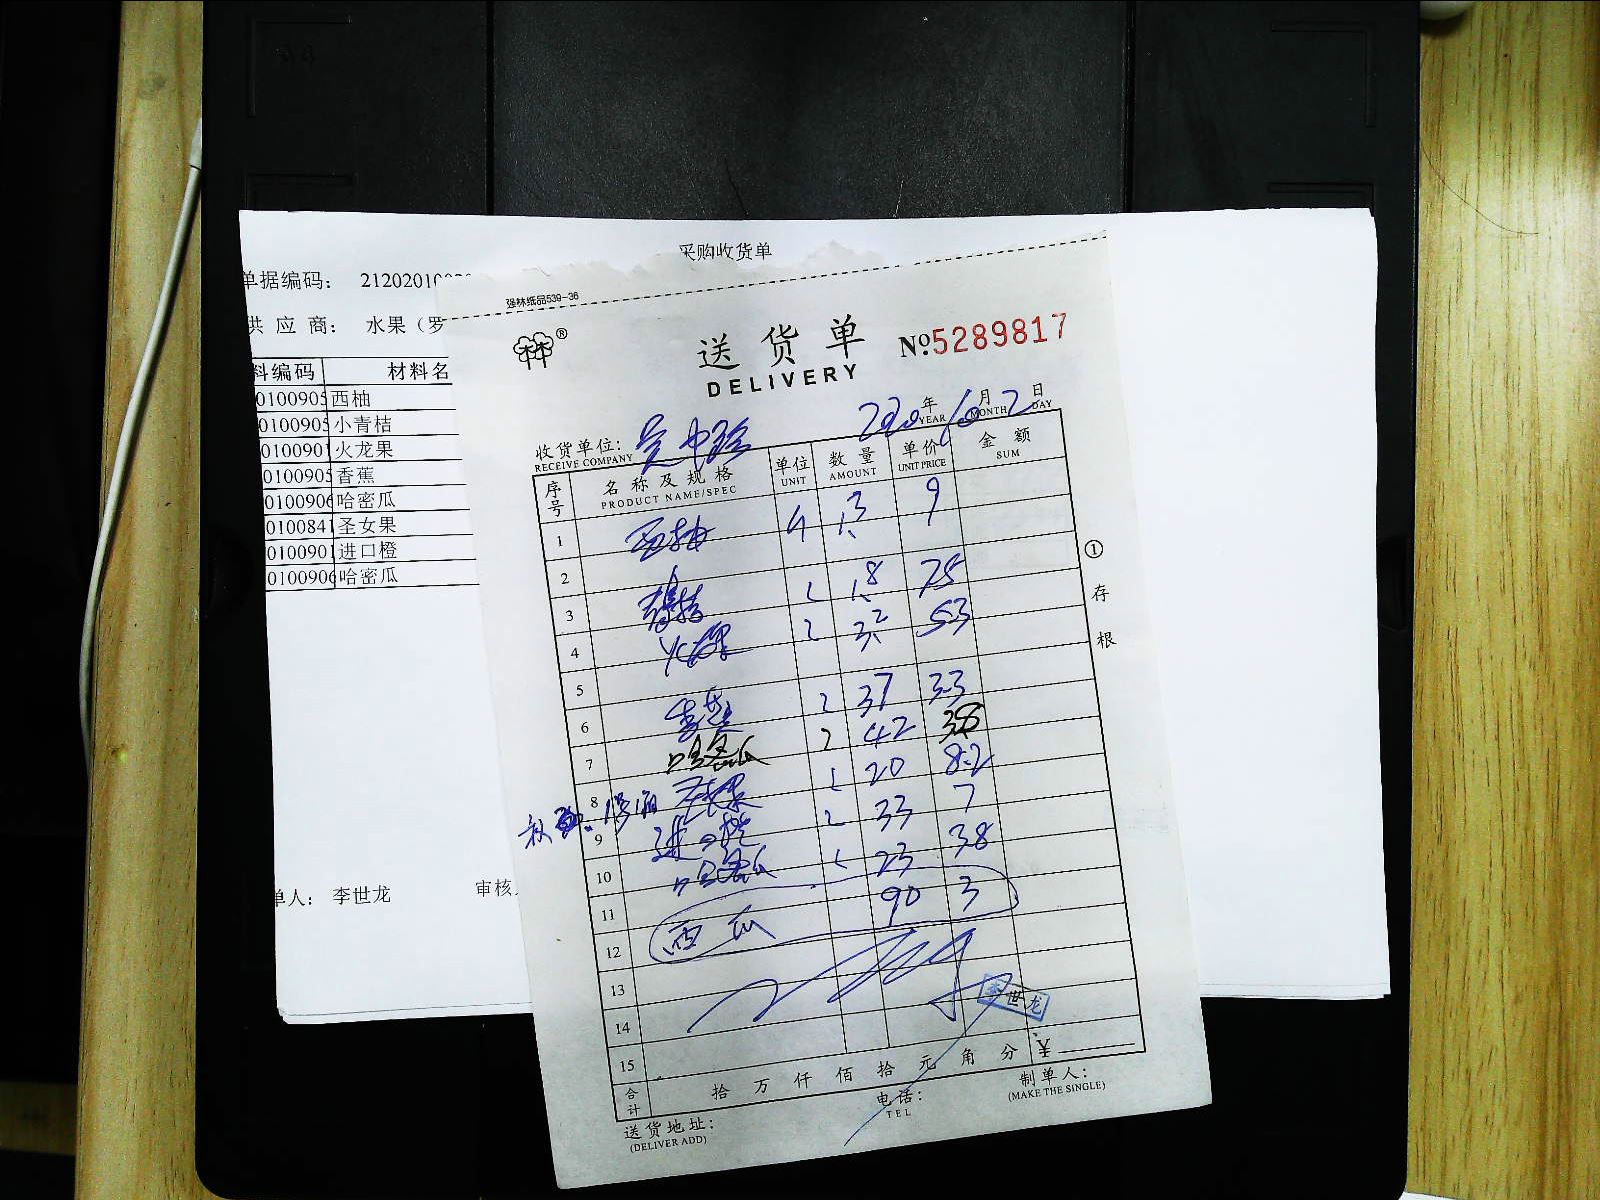 采购收货单
单据编码： 2120201
供 应 商： 水果（罗
料编码 材料名
0100905 西柚
0100905 小青桔
0100901 火龙果
0100905 香蕉
0100906 哈密瓜
0100841 圣女果
0100901 进口橙
0100906 哈密瓜
单人： 李世龙 审核
强林纸品539-36
林®
送货单 №5289817
DELIVERY
2020年10月2日
YEAR MONTH DAY
收货单位：吴中路
RECEIVE COMPANY
序号 名称及规格 单位 数量 单价 金额
PRODUCT NAME/SPEC UNIT AMOUNT UNIT PRICE SUM
1 西柚 个 13 9
2
3 青桔 1.8 7.5
4 火龙果 3.2 5.3
5
6 香蕉 37 3.3
7 哈密瓜 42 3.8
8 圣女果 20 8.2
9 进口橙 33 7
10 哈密瓜 23 3.8
11 西瓜 90 3
12
13
14
15
李世龙
合计 拾 万 仟 佰 拾 元 角 分 ¥
①存根
送货地址： 电话： 制单人：
(DELIVER ADD) TEL (MAKE THE SINGLE)